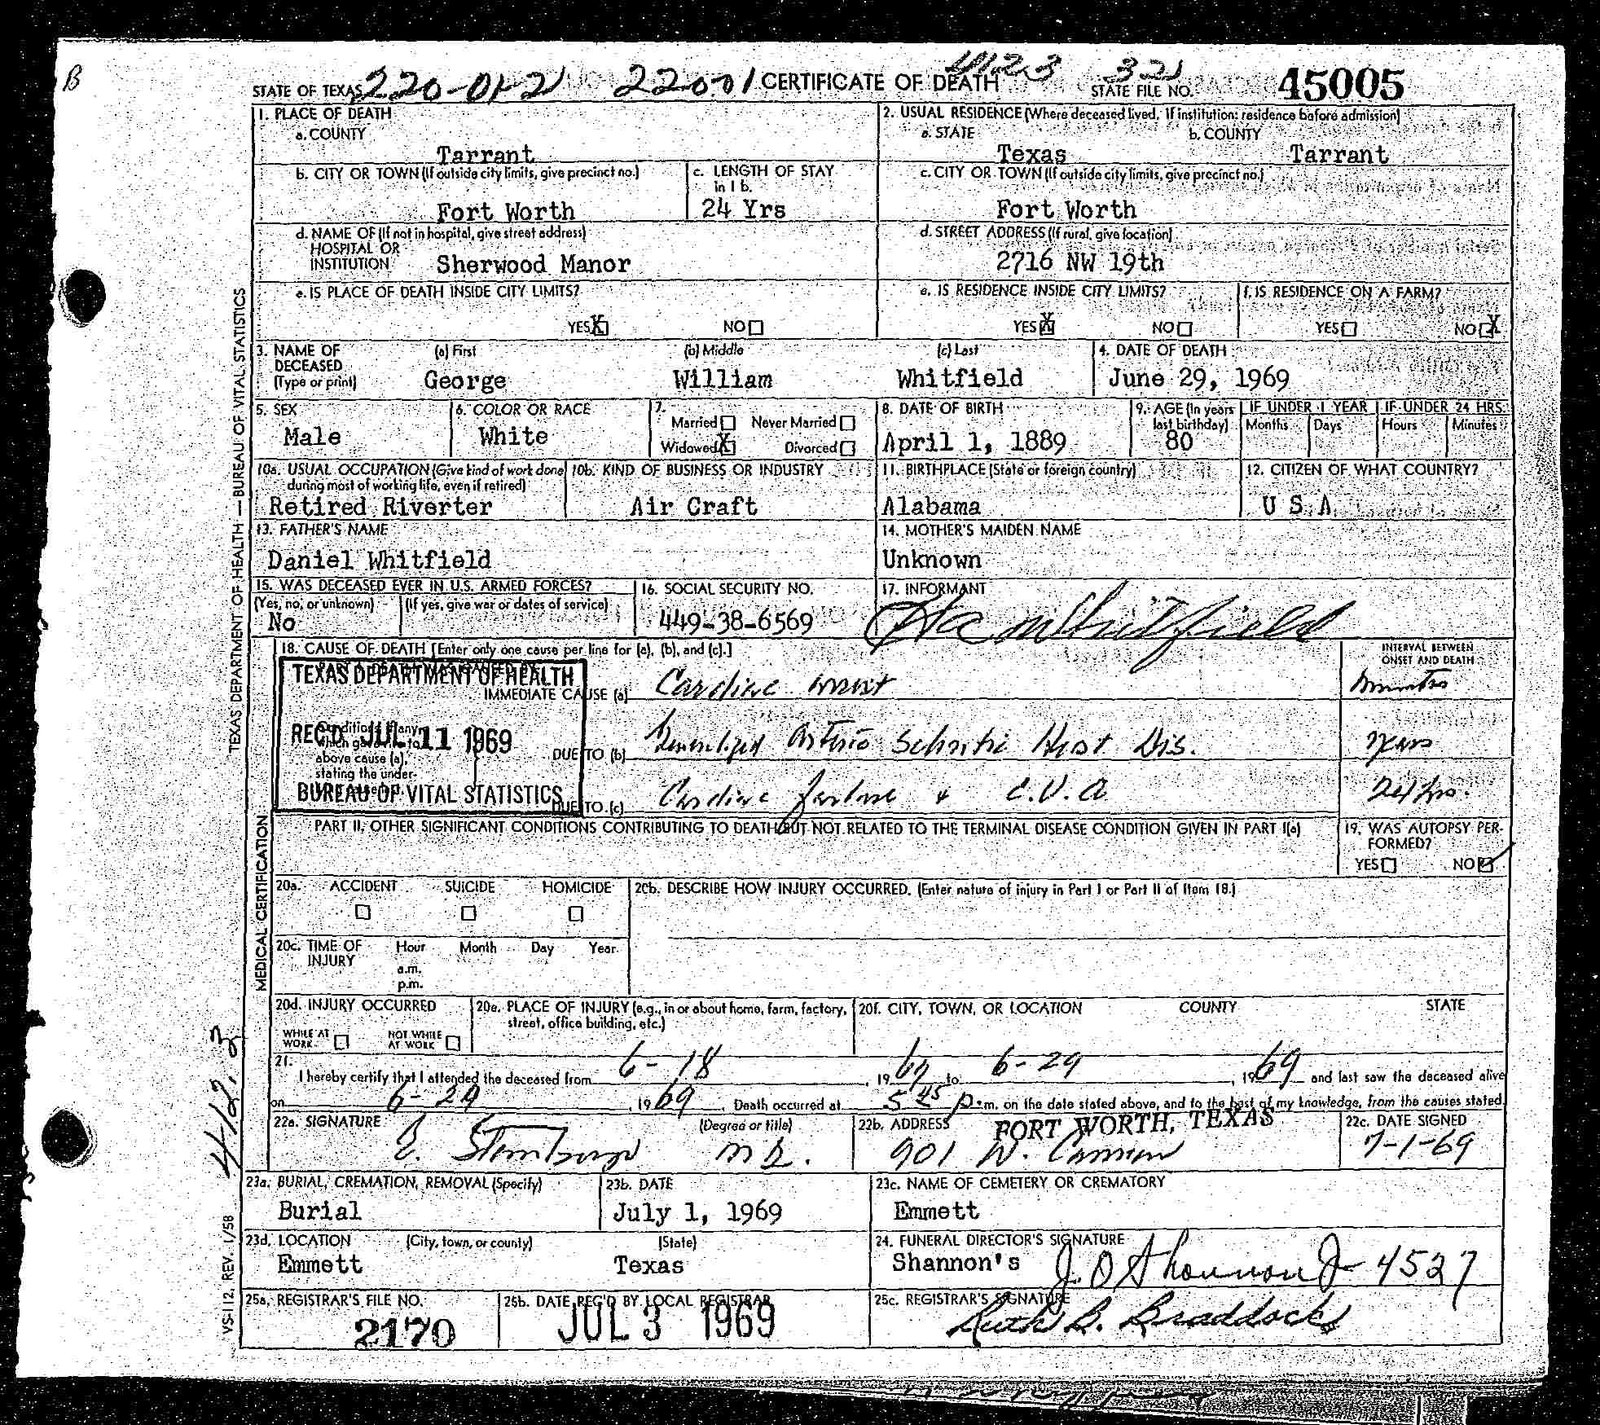 B
STATE OF TEXAS 220-01-2 22001 CERTIFICATE OF DEATH 4123 321 STATE FILE NO. 45005
1. PLACE OF DEATH
a. COUNTY
Tarrant
2. USUAL RESIDENCE (Where deceased lived. If institution: residence before admission)
a. STATE b. COUNTY
Texas Tarrant
b. CITY OR TOWN (If outside city limits, give precinct no.)
Fort Worth
c. LENGTH OF STAY
in 1 b.
24 Yrs
c. CITY OR TOWN (If outside city limits, give precinct no.)
Fort Worth
d. NAME OF (If not in hospital, give street address)
HOSPITAL OR
INSTITUTION Sherwood Manor
d. STREET ADDRESS (If rural, give location)
2716 NW 19th
e. IS PLACE OF DEATH INSIDE CITY LIMITS?
YES X NO
e. IS RESIDENCE INSIDE CITY LIMITS?
YES X NO
f. IS RESIDENCE ON A FARM?
YES NO X
3. NAME OF DECEASED
(Type or print)
(a) First (b) Middle (c) Last
George William Whitfield
4. DATE OF DEATH
June 29, 1969
5. SEX
Male
6. COLOR OR RACE
White
7.
Married Never Married
Widowed X Divorced
8. DATE OF BIRTH
April 1, 1889
9. AGE (In years
last birthday)
80
IF UNDER 1 YEAR IF UNDER 24 HRS.
Months Days Hours Minutes
10a. USUAL OCCUPATION (Give kind of work done
during most of working life, even if retired)
Retired Riverter
10b. KIND OF BUSINESS OR INDUSTRY
Air Craft
11. BIRTHPLACE (State or foreign country)
Alabama
12. CITIZEN OF WHAT COUNTRY?
U S A
13. FATHER'S NAME
Daniel Whitfield
14. MOTHER'S MAIDEN NAME
Unknown
15. WAS DECEASED EVER IN U.S. ARMED FORCES?
(Yes, no, or unknown) (If yes, give war or dates of service)
No
16. SOCIAL SECURITY NO.
449-38-6569
17. INFORMANT
Whitfield
18. CAUSE OF DEATH [Enter only one cause per line for (a), (b), and (c).]
INTERVAL BETWEEN
ONSET AND DEATH
TEXAS DEPARTMENT OF HEALTH
REC'D JUL 11 1969
BUREAU OF VITAL STATISTICS
IMMEDIATE CAUSE (a) Cardiac arrest
above cause (a),
stating the under-
DUE TO (b) Generalized Arterio Sclerotic Heart Dis. years
DUE TO (c) Cardiac failure & C.V.A
PART II. OTHER SIGNIFICANT CONDITIONS CONTRIBUTING TO DEATH BUT NOT RELATED TO THE TERMINAL DISEASE CONDITION GIVEN IN PART I(a)
19. WAS AUTOPSY PER-
FORMED?
YES NO
20a. ACCIDENT SUICIDE HOMICIDE
20b. DESCRIBE HOW INJURY OCCURRED. (Enter nature of injury in Part I or Part II of Item 18.)
20c. TIME OF
INJURY
Hour Month Day Year
a.m.
p.m.
20d. INJURY OCCURRED
WHILE AT
WORK
NOT WHILE
AT WORK
20e. PLACE OF INJURY (e.g., in or about home, farm, factory,
street, office building, etc.)
20f. CITY, TOWN, OR LOCATION COUNTY STATE
21.
I hereby certify that I attended the deceased from 6-18, 1969 to 6-29, 1969 and last saw the deceased alive
on 6-29, 1969. Death occurred at 5:45 p.m. on the date stated above, and to the best of my knowledge, from the causes stated.
22a. SIGNATURE (Degree or title)
M.D.
22b. ADDRESS FORT WORTH, TEXAS
901 W.
22c. DATE SIGNED
7-1-69
23a. BURIAL, CREMATION, REMOVAL (Specify)
Burial
23b. DATE
July 1, 1969
23c. NAME OF CEMETERY OR CREMATORY
Emmett
23d. LOCATION (City, town, or county) (State)
Emmett Texas
24. FUNERAL DIRECTOR'S SIGNATURE
Shannon's J. O Shannon Jr 4527
25a. REGISTRAR'S FILE NO.
2170
25b. DATE REC'D BY LOCAL REGISTRAR
JUL 3 1969
25c. REGISTRAR'S SIGNATURE
Ruth B. Braddock
TEXAS DEPARTMENT OF HEALTH — BUREAU OF VITAL STATISTICS
MEDICAL CERTIFICATION
412.3
VS-112, REV. 1/58